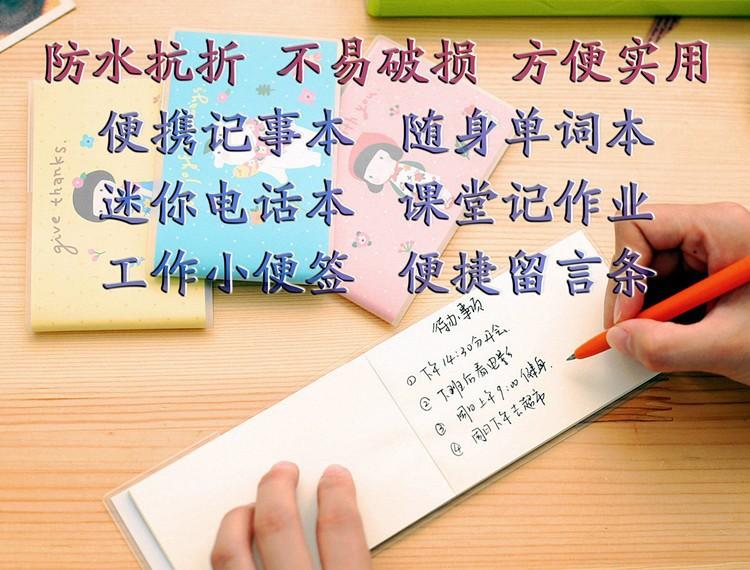 防水抗折 不易破损 方便实用
便携记事本 随身单词本
迷你电话本 课堂记作业
工作小便签 便捷留言条
give thanks.
待办事项
① 下午14:30分开会、
② 下班后看电影
③ 周日上午9:00健身.
④ 周日下午去超市